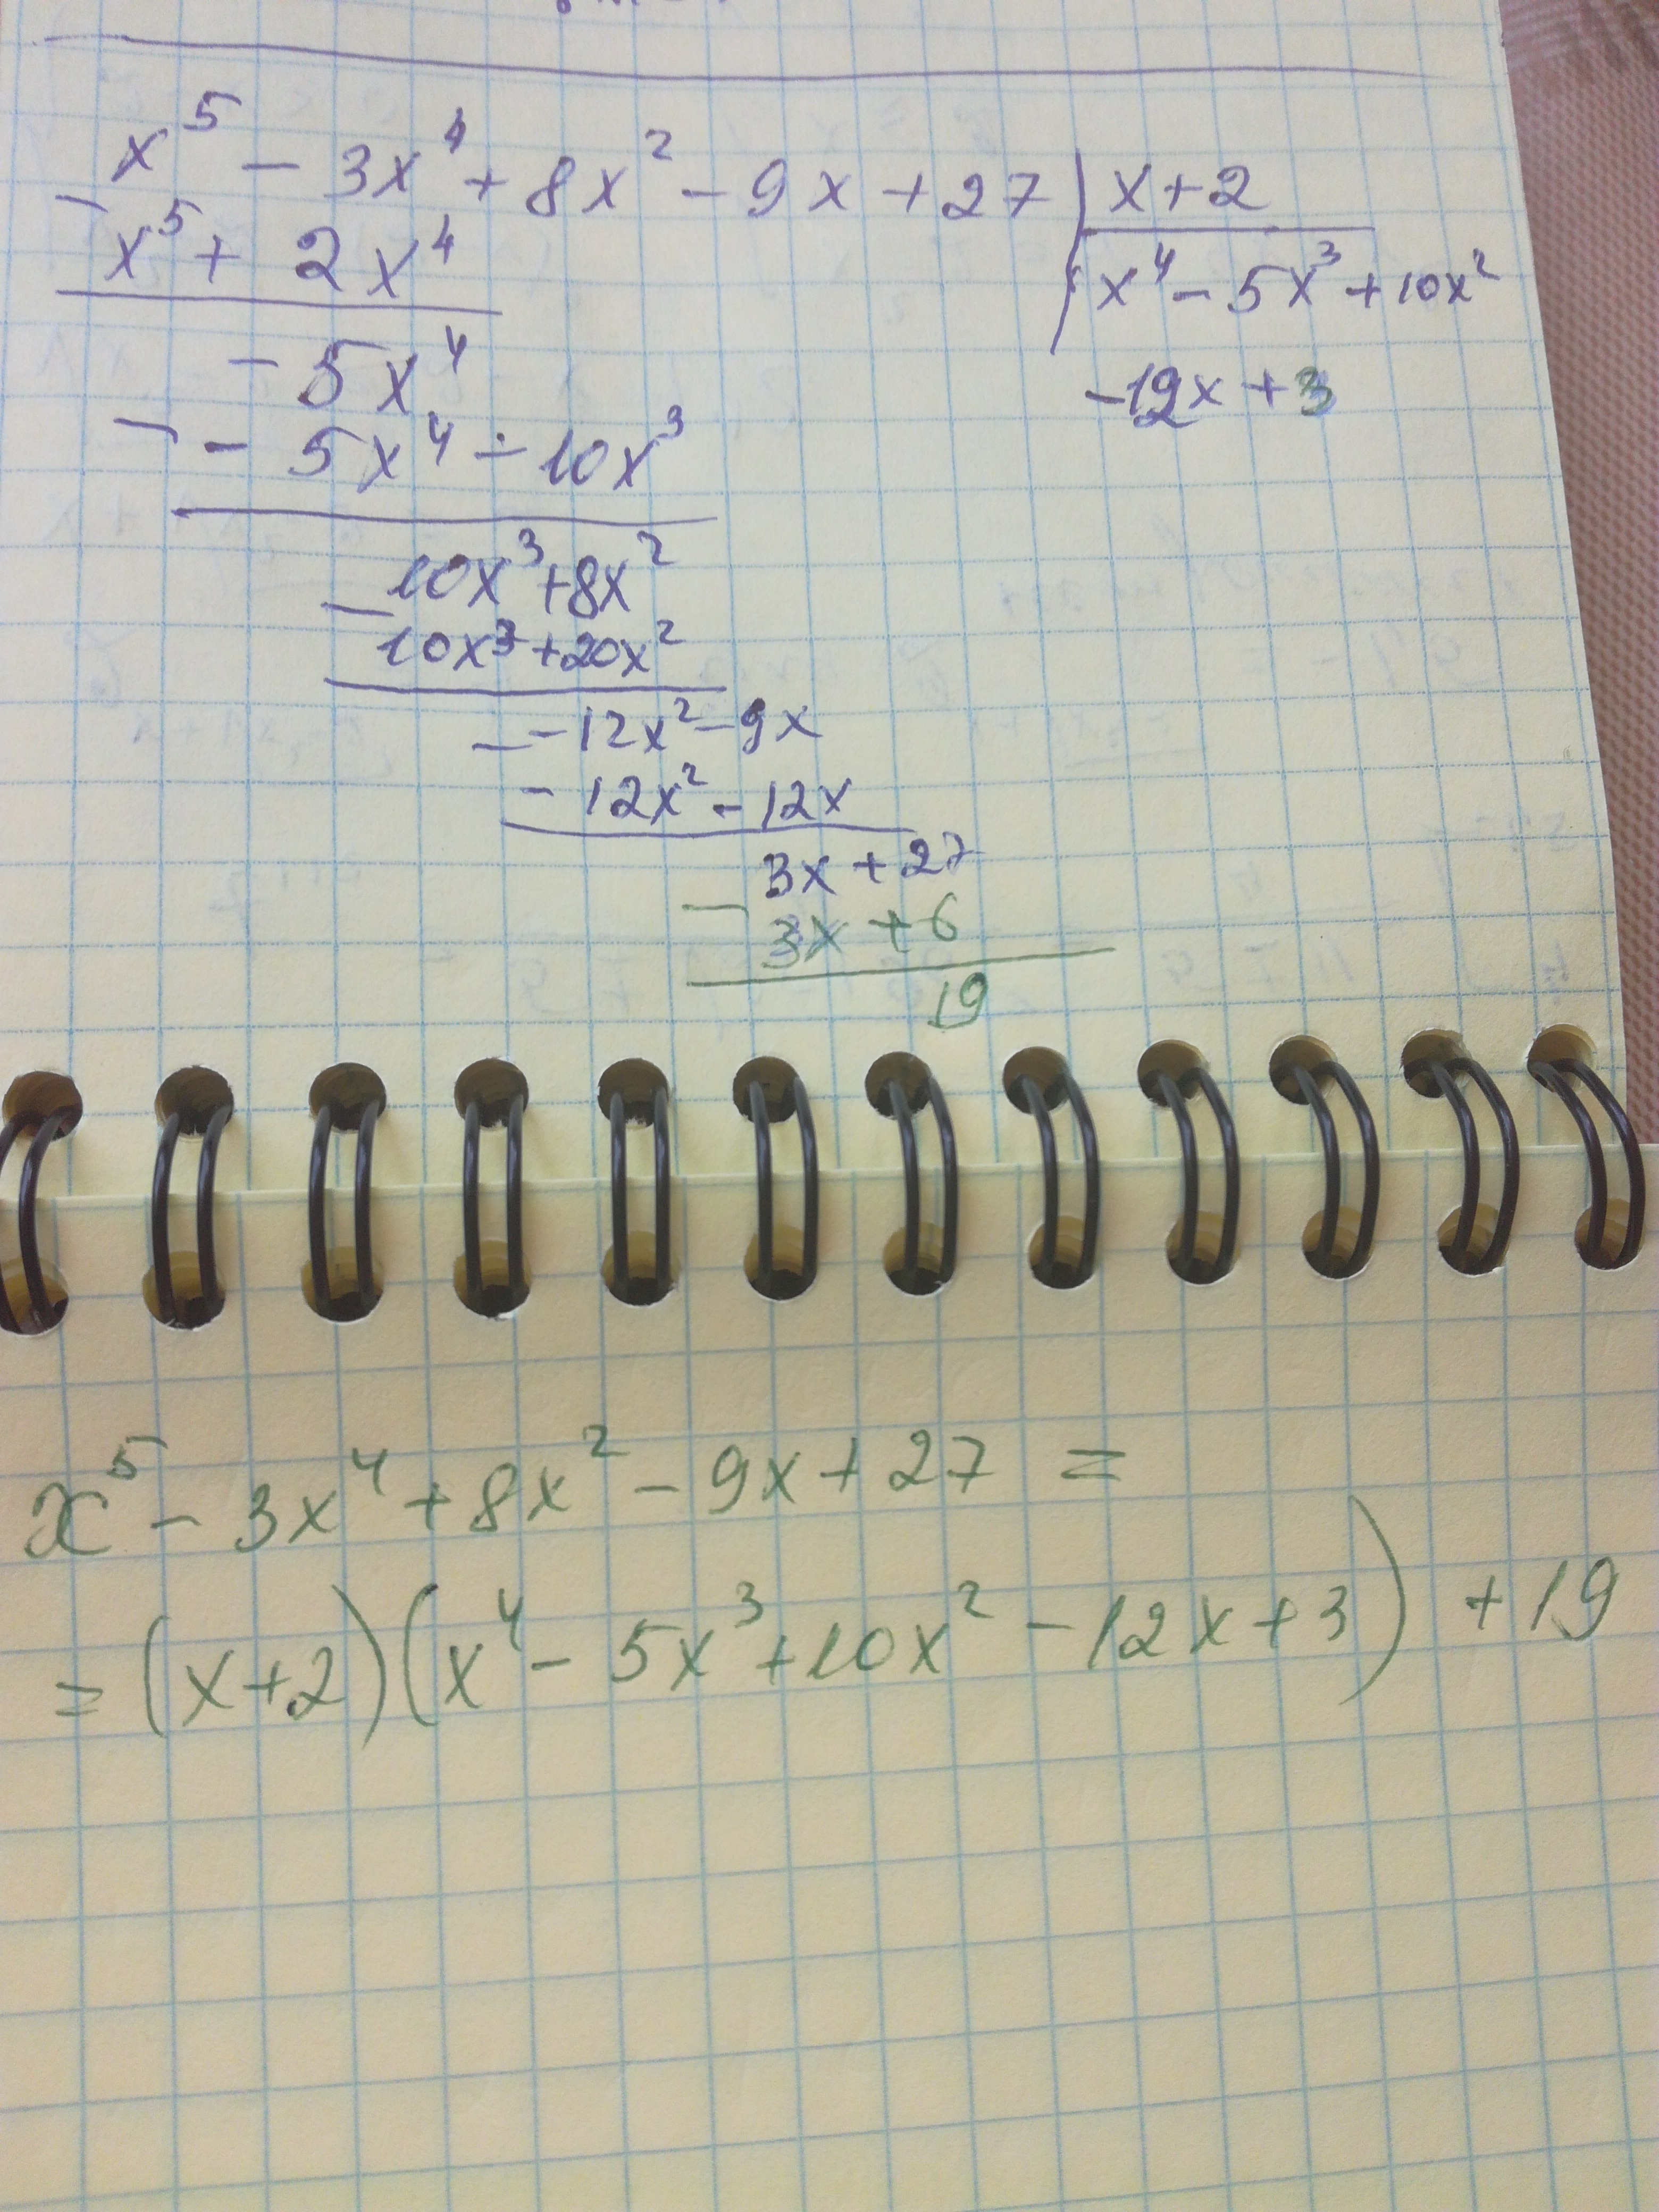 x⁵ - 3x⁴ + 8x² - 9x + 27 | x + 2
- x⁵ + 2x⁴ | x⁴ - 5x³ + 10x²
- 5x⁴
- 12x + 3
- - 5x⁴ - 10x³
- 10x³ + 8x²
10x³ + 20x²
- - 12x² - 9x
- 12x² - 12x
3x + 27
- 3x + 6
19
x⁵ - 3x⁴ + 8x² - 9x + 27 =
= (x+2)(x⁴ - 5x³ + 10x² - 12x + 3) + 19